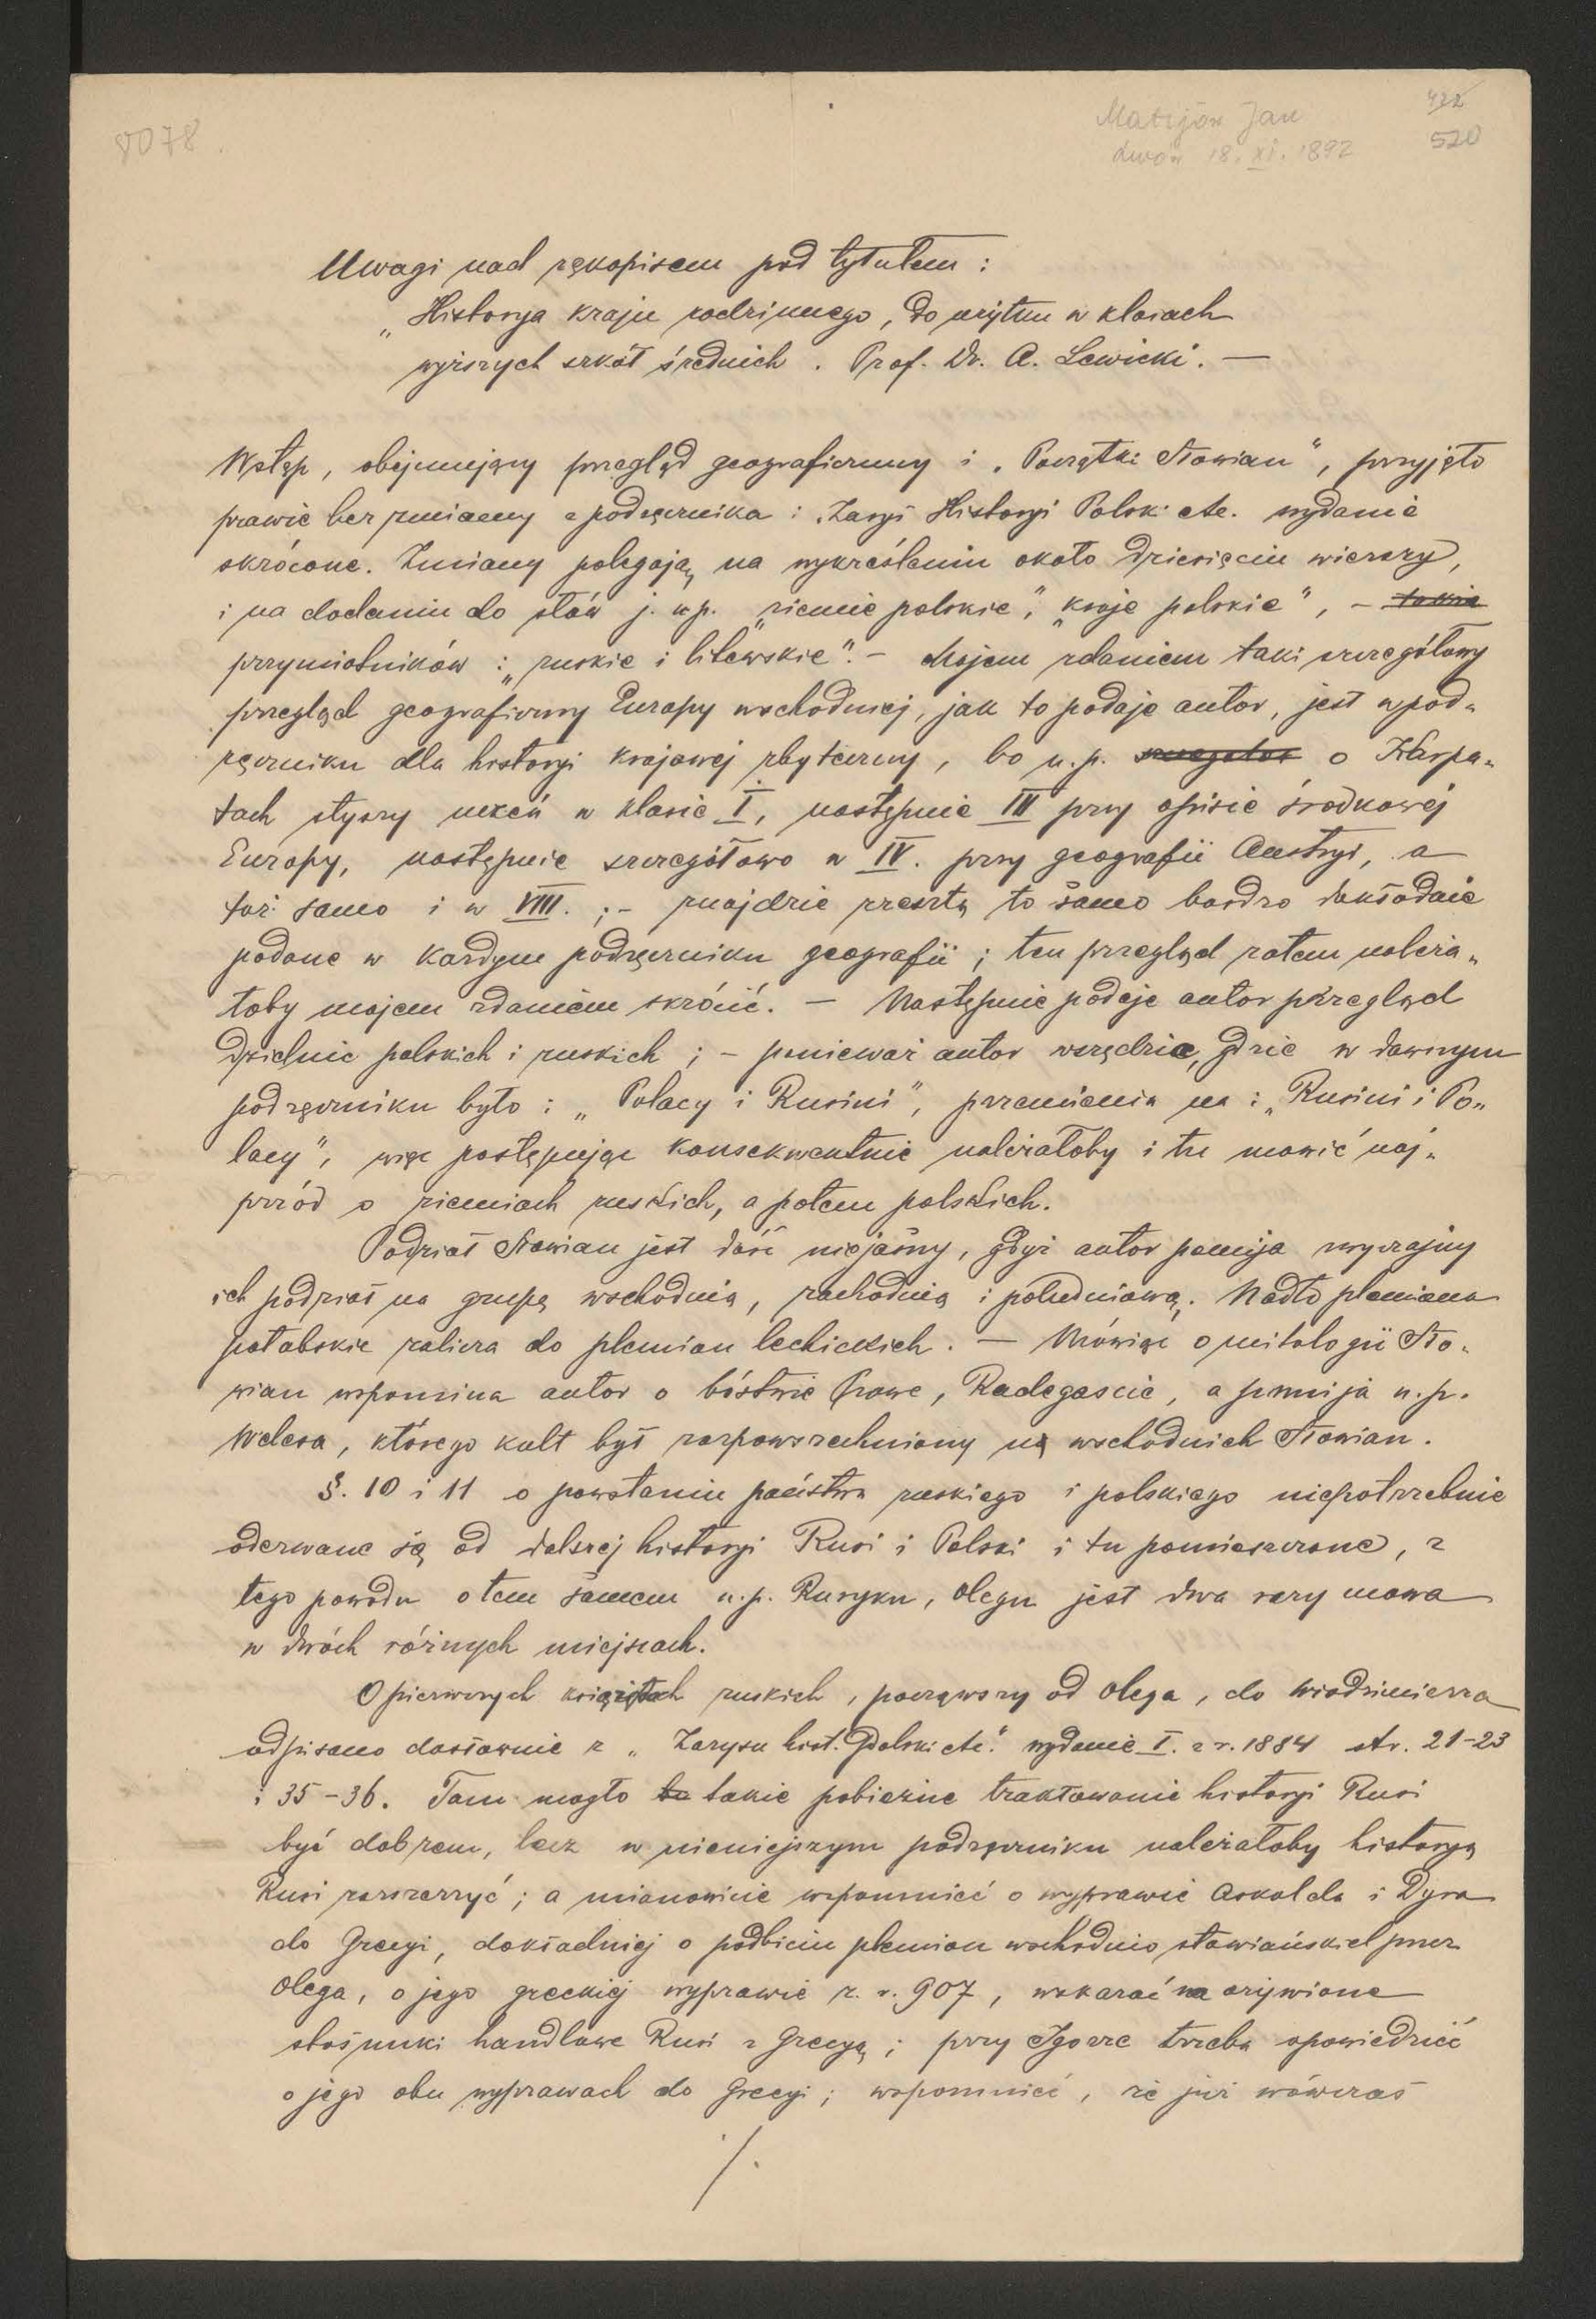 8078.
Matijów Jan
Lwów 18. XI. 1892
432
520
Uwagi nad rękopisem pod tytułem :
„Historya kraju rodzinnego, do użytku w klasach
wyższych szkół średnich . Prof. Dr. A. Lewicki. —
Wstęp, obejmujący przegląd geograficzny i „Początki Słowian“, przyjęto
prawie bez zmiany z podręcznika : „Zarys Historyi Polski etc. wydanie
skrócone. Zmiany polegają na wykreśleniu około dziesięciu wierszy,
i na dodaniu do słów j. np. „ziemie polskie“, „kraje polskie“, – takie
przymiotników : „ruskie i litewskie“. – Mojem zdaniem taki szczegółowy
przegląd geograficzny Europy wschodniej, jak to podaje autor, jest w pod„
ręczniku dla historyi krajowej zbyteczny, bo n. p. o Karpa„
tach słyszy uczeń w klasie I, następnie III przy opisie środkowej
Europy, następnie szczegółowo w IV. przy geografii Austryi, a
toż samo i w VIII. ; – znajdzie zresztą to samo bardzo dokładnie
podane w każdym podręczniku geografii ; ten przegląd zatem należa„
łoby mojem zdaniem skrócić. — Następnie podaje autor przegląd
dzielnic polskich i ruskich ; – ponieważ autor wszędzie, gdzie w dawnym
podręczniku było : „Polacy i Rusini“, przemienia na : „Rusini i Po„
lacy“, więc postępując konsekwentnie należałoby i tu mówić naj„
przód o ziemiach ruskich, a potem polskich.
Podział Słowian jest dość niejasny, gdyż autor pomija zwyczajny
ich podział na grupę wschodnią, zachodnią i południową. Nadto plemiona
połabskie zalicza do plemion lechickich. — Mówiąc o mitologii Sło„
wian wspomina autor o bóstwie Prowe, Radegascie, a pomija n. p.
Welesa, którego kult był rozpowszechniony u wschodnich Słowian.
§. 10 i 11 o powstaniu państwa ruskiego i polskiego niepotrzebnie
oderwane są od dalszej historyi Rusi i Polski i tu pomieszczone, z
tego powodu o tem samem n. p. Ruryku, Olegu jest dwa razy mowa
w dwóch różnych miejscach.
O pierwszych książętach ruskich, począwszy od Olega, do Włodzimierza
odpisano dosłownie z „Zarysu hist. Polski etc.“ wydanie I. z r. 1884 str. 21–23
i 35–36. Tam mogło to takie pobieżne traktowanie historyi Rusi
być dobrem, lecz w niniejszym podręczniku należałoby historyą
Rusi rozszerzyć ; a mianowicie wspomnieć o wyprawie Askolda i Dyra
do Grecyi, dokładniej o podbiciu plemion wschodnio słowiańskich przez
Olega, o jego greckiej wyprawie z. r. 907, wskazać na ożywione
stosunki handlowe Rusi z Grecyą ; przy Igorze trzeba opowiedzieć
o jego obu wyprawach do Grecyi ; wspomnieć, że już wówczas
./.